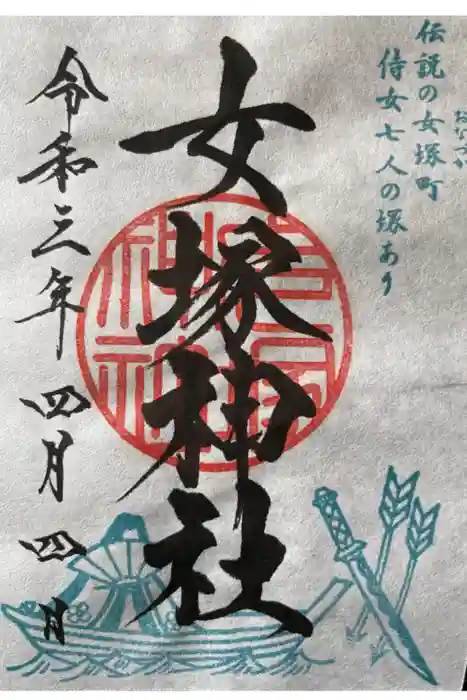 伝説の女塚町
侍女七人の塚あり
女塚神社
令和三年 四月 四日